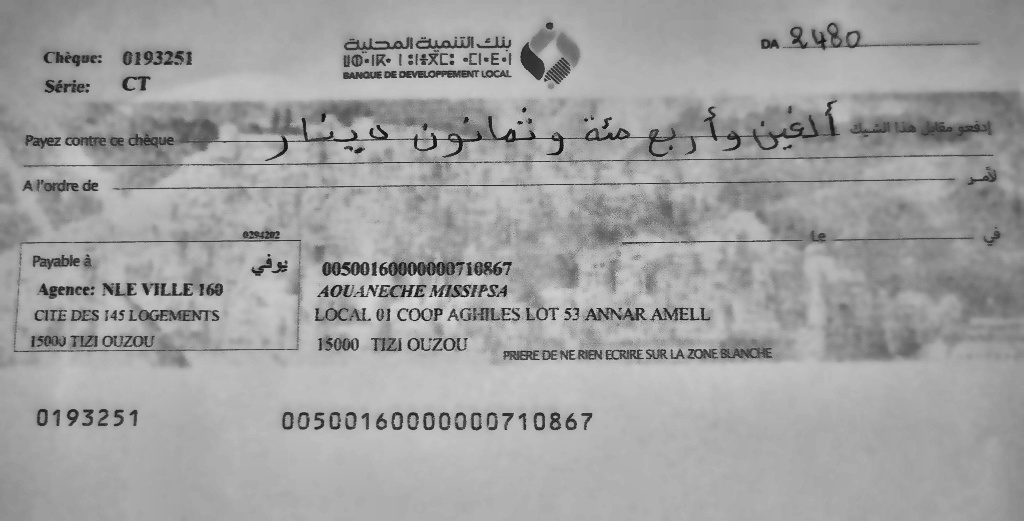 Chèque: 0193251
Série: CT
بنك التنمية المحلية
BANQUE DE DEVELOPPEMENT LOCAL
DA 2480
Payez contre ce chèque ألفين وأربع مئة وثمانون دينار إدفعو مقابل هذا الشيك
A l'ordre de لأمر
في له
0294202
Payable à يوفي
Agence: NLE VILLE 160
CITE DES 145 LOGEMENTS
15000 TIZI OUZOU
00500160000000710867
AOUANECHE MISSIPSA
LOCAL 01 COOP AGHILES LOT 53 ANNAR AMELL
15000 TIZI OUZOU
PRIERE DE NE RIEN ECRIRE SUR LA ZONE BLANCHE
0193251 00500160000000710867